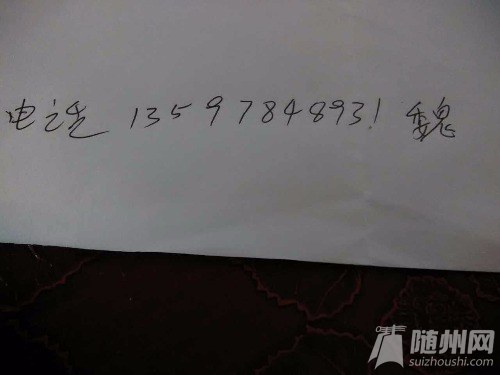 电话 13597848931 魏
随州网
suizhoushi.com